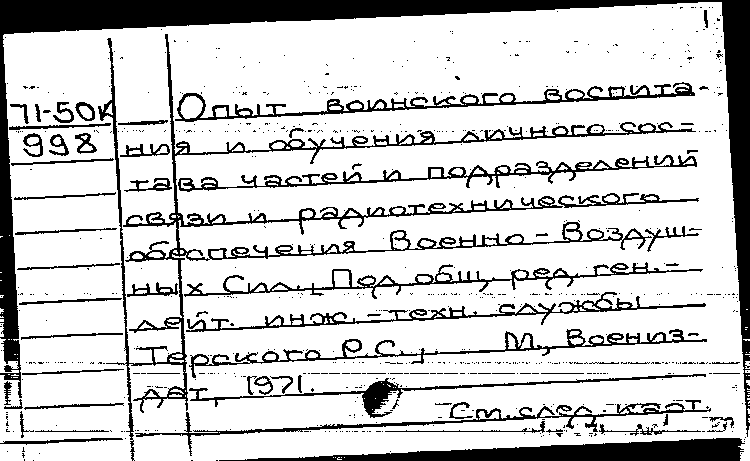 1
71-50К Опыт воинского воспита-
998 ния и обучения личного сос-
тава частей и подразделений
связи и радиотехнического
обеспечения Военно-Воздуш-
ных Сил., Под общ. ред. ген.-
лейт. инж.-техн. службы
Терского Р.С., М., Воениз-
дат, 1971.
См. след. карт.